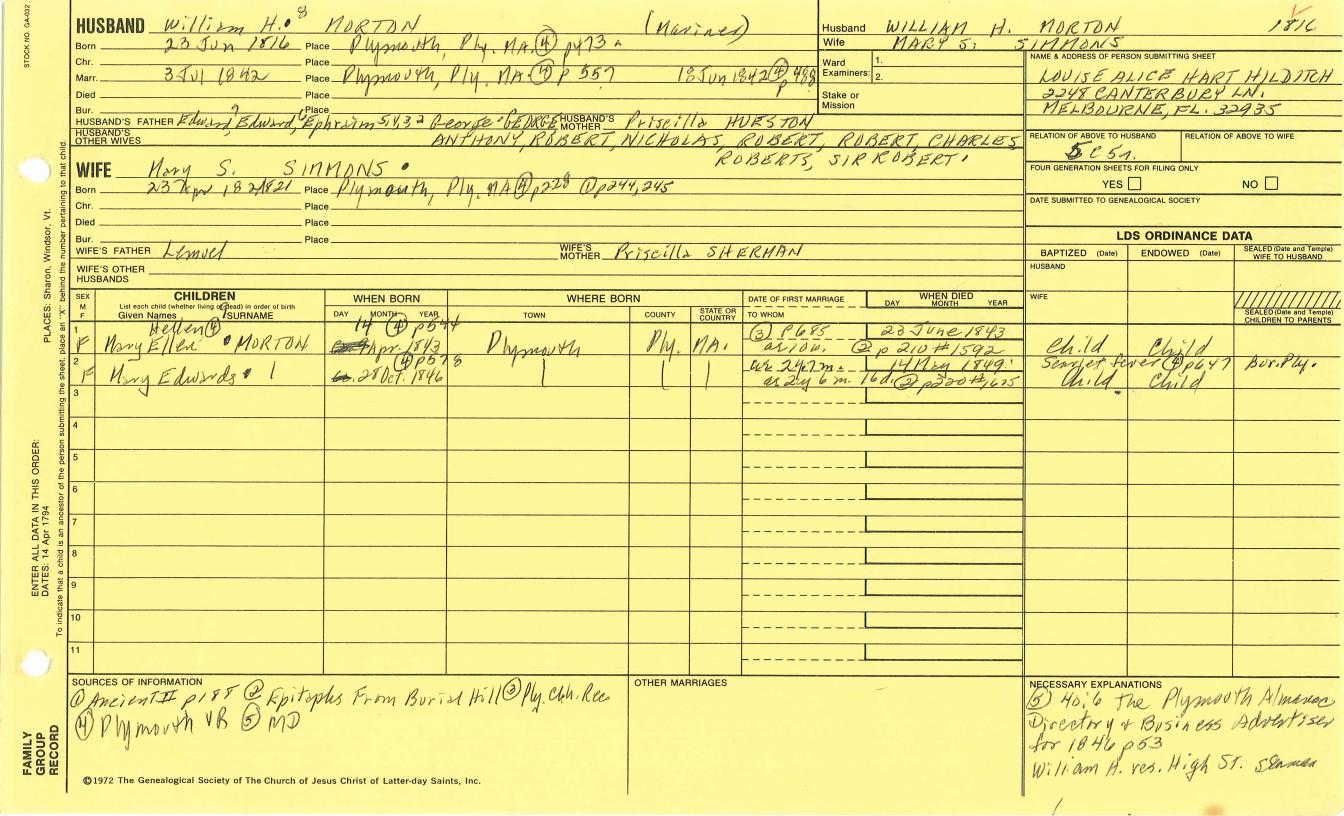 STOCK NO. GA-032
HUSBAND William H. 8 MORTON (Mariner)
Born 23 Jun 1816 Place Plymouth, Ply. MA. ④ p473
Chr. Place
Marr. 3 Jul 1842 Place Plymouth, Ply MA. ④ p 557 18 Jun 1842 ④ p
Died Place
Bur. Place
HUSBAND'S FATHER Edward, Edward, Ephraim 5,4,3,2 George GEORGE HUSBAND'S MOTHER Priscilla HUESTON
HUSBAND'S OTHER WIVES ANTHONY, ROBERT, NICHOLAS, ROBERT, ROBERT, CHARLES,
ROBERTS, SIR ROBERT.
WIFE Mary S. SIMMONS
Born 23 Apr 1821 Place Plymouth, Ply. MA ④ p228 ① p244,245
Chr. Place
Died Place
Bur. Place
WIFE'S FATHER Lemuel WIFE'S MOTHER Priscilla SHERMAN
WIFE'S OTHER HUSBANDS
Husband WILLIAM H. MORTON 1816
Wife MARY S. SIMMONS
Ward Examiners: 1.
2.
Stake or Mission
NAME & ADDRESS OF PERSON SUBMITTING SHEET
LOUISE ALICE HART HILDITCH
2248 CANTERBURY LN.
MELBOURNE, FL. 32935
RELATION OF ABOVE TO HUSBAND RELATION OF ABOVE TO WIFE
5C5r.
FOUR GENERATION SHEETS FOR FILING ONLY
YES NO
DATE SUBMITTED TO GENEALOGICAL SOCIETY
LDS ORDINANCE DATA
BAPTIZED (Date) ENDOWED (Date) SEALED (Date and Temple) WIFE TO HUSBAND
HUSBAND
WIFE
SEALED (Date and Temple) CHILDREN TO PARENTS
SEX M F CHILDREN WHEN BORN WHERE BORN DATE OF FIRST MARRIAGE WHEN DIED
List each child (whether living or dead) in order of birth
Given Names SURNAME DAY MONTH YEAR TOWN COUNTY STATE OR COUNTRY TO WHOM DAY MONTH YEAR
1 Hellen ④ 14 ④ p544 ③ p685 23 June 1843
F Mary Ellen MORTON Apr. 1843 Plymouth Ply. MA. ae 10w. ② p 210 #1592 Child Child
2 ④ p578 ae 2y7m. 14 May 1849. Scarlet fever ④ p647 Bur. Ply.
F Mary Edwards 28 Oct. 1846 ae 2y 6m. 16d. ② p220 #1675 Child Child
3
4
5
6
7
8
9
10
11
SOURCES OF INFORMATION
① Ancient II p188 ② Epitaphs From Burial Hill ③ Ply. Chh. Rec
④ Plymouth VR ⑤ MD
OTHER MARRIAGES
NECESSARY EXPLANATIONS
⑤ 40:6 the Plymouth Almanac
Directory & Business Advertiser
for 1846 p53
William H. res. High St. Seaman
©1972 The Genealogical Society of The Church of Jesus Christ of Latter-day Saints, Inc.
FAMILY
GROUP
RECORD
ENTER ALL DATA IN THIS ORDER:
DATES: 14 Apr 1794
PLACES: Sharon, Windsor, Vt.
To indicate that a child is an ancestor of the person submitting the sheet, place an "X" behind the number pertaining to that child.